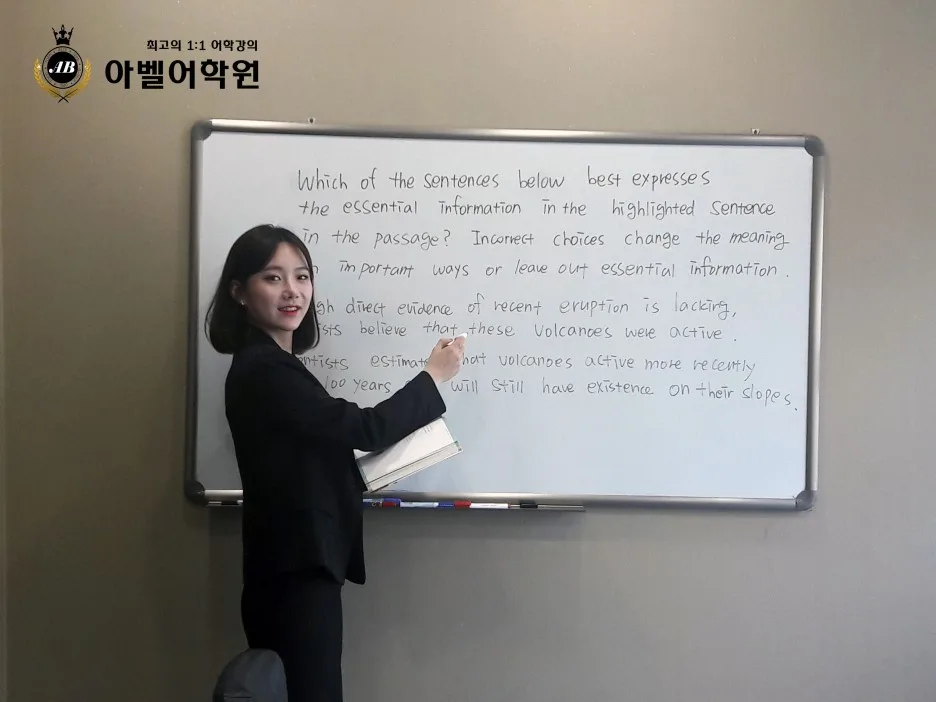 최고의 1:1 어학강의
아벨어학원
AB
Which of the sentences below best expresses
the essential information in the highlighted Sentence
in the passage? Incorrect choices change the meaning
important ways or leave out essential information.
direct evidence of recent eruption is lacking,
believe that these volcanoes were active.
estimate that volcanoes active more recently
100 years will still have existence on their slopes.